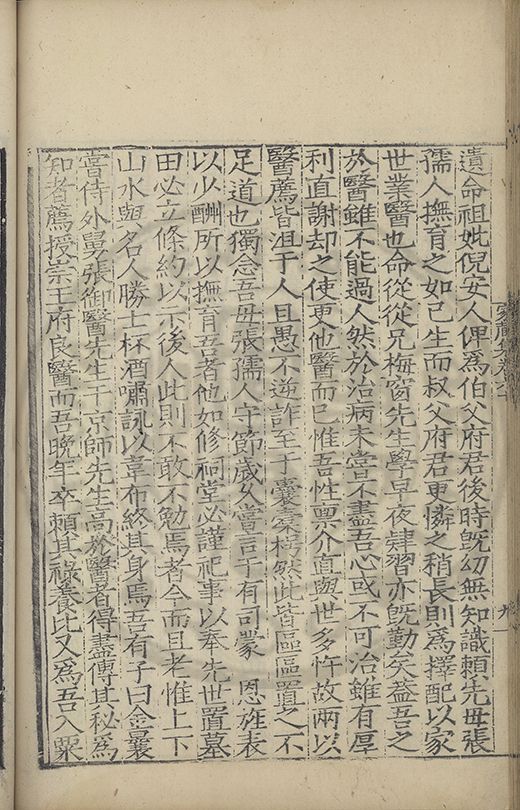 遺命祖妣倪安人俾為伯父府君後時旣幼無知識賴先母張
孺人撫育之如己生而叔父府君更憐之稍長則為擇配以家
世業醫也命從從兄梅窗先生學早夜肄習亦旣勤矣蓋吾之
於醫雖不能過人然於治病未嘗不盡吾心或不可治雖有厚
利直謝却之使更他醫而已惟吾性禀介直與世多忤故兩以
醫薦皆沮于人且愚不逆詐至于囊橐枵然此皆區區置之不
足道也獨念吾母張孺人守節歲久嘗言于有司蒙 恩旌表
以少酬所以撫育吾者他如修祠堂必謹祀事以奉先世置墓
田必立條約以示後人此則不敢不勉焉者今而且老惟上下
山水與名人勝士杯酒嘯詠以韋布終其身焉吾有子曰金曩
嘗侍外舅張御醫先生于京師先生高於醫者得盡傳其秘為
知者薦授宗王府良醫而吾晚年卒賴其祿養比又為吾入粟